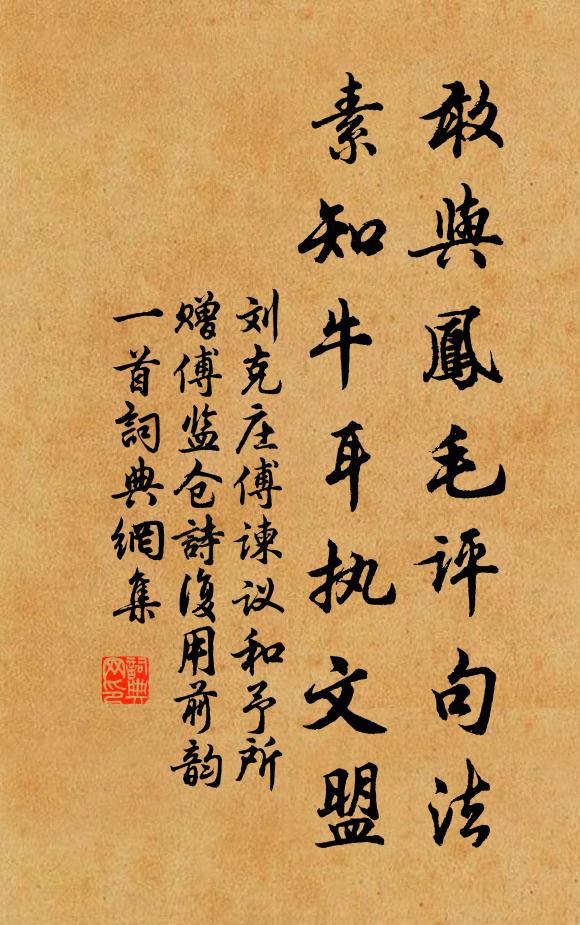 敢與鳳毛评句法
素知牛耳执文盟
刘克庄傅谏议和予所
赠傅监仓詩復用前韵
一首詞典網集
詞典网印